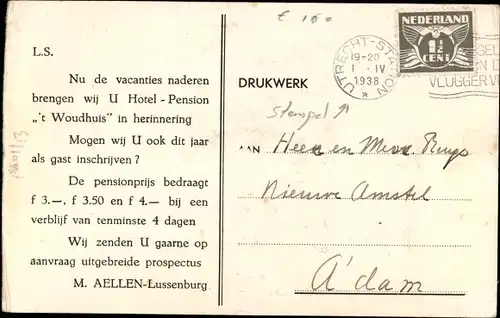 € 10=
NEDERLAND
1½
CENT
UTRECHT-STATION
19-20
1 IV
1938
VLUGGER
L.S.
Nu de vacanties naderen
brengen wij U Hotel - Pension
„'t Woudhuis" in herinnering
Mogen wij U ook dit jaar
als gast inschrijven?
De pensionprijs bedraagt
f 3.—, f 3.50 en f 4.— bij een
verblijf van tenminste 4 dagen
Wij zenden U gaarne op
aanvraag uitgebreide prospectus
M. AELLEN-Lussenburg
DRUKWERK
stempel
AAN Heer en Mevr
Nieuwe Amstel
A'dam